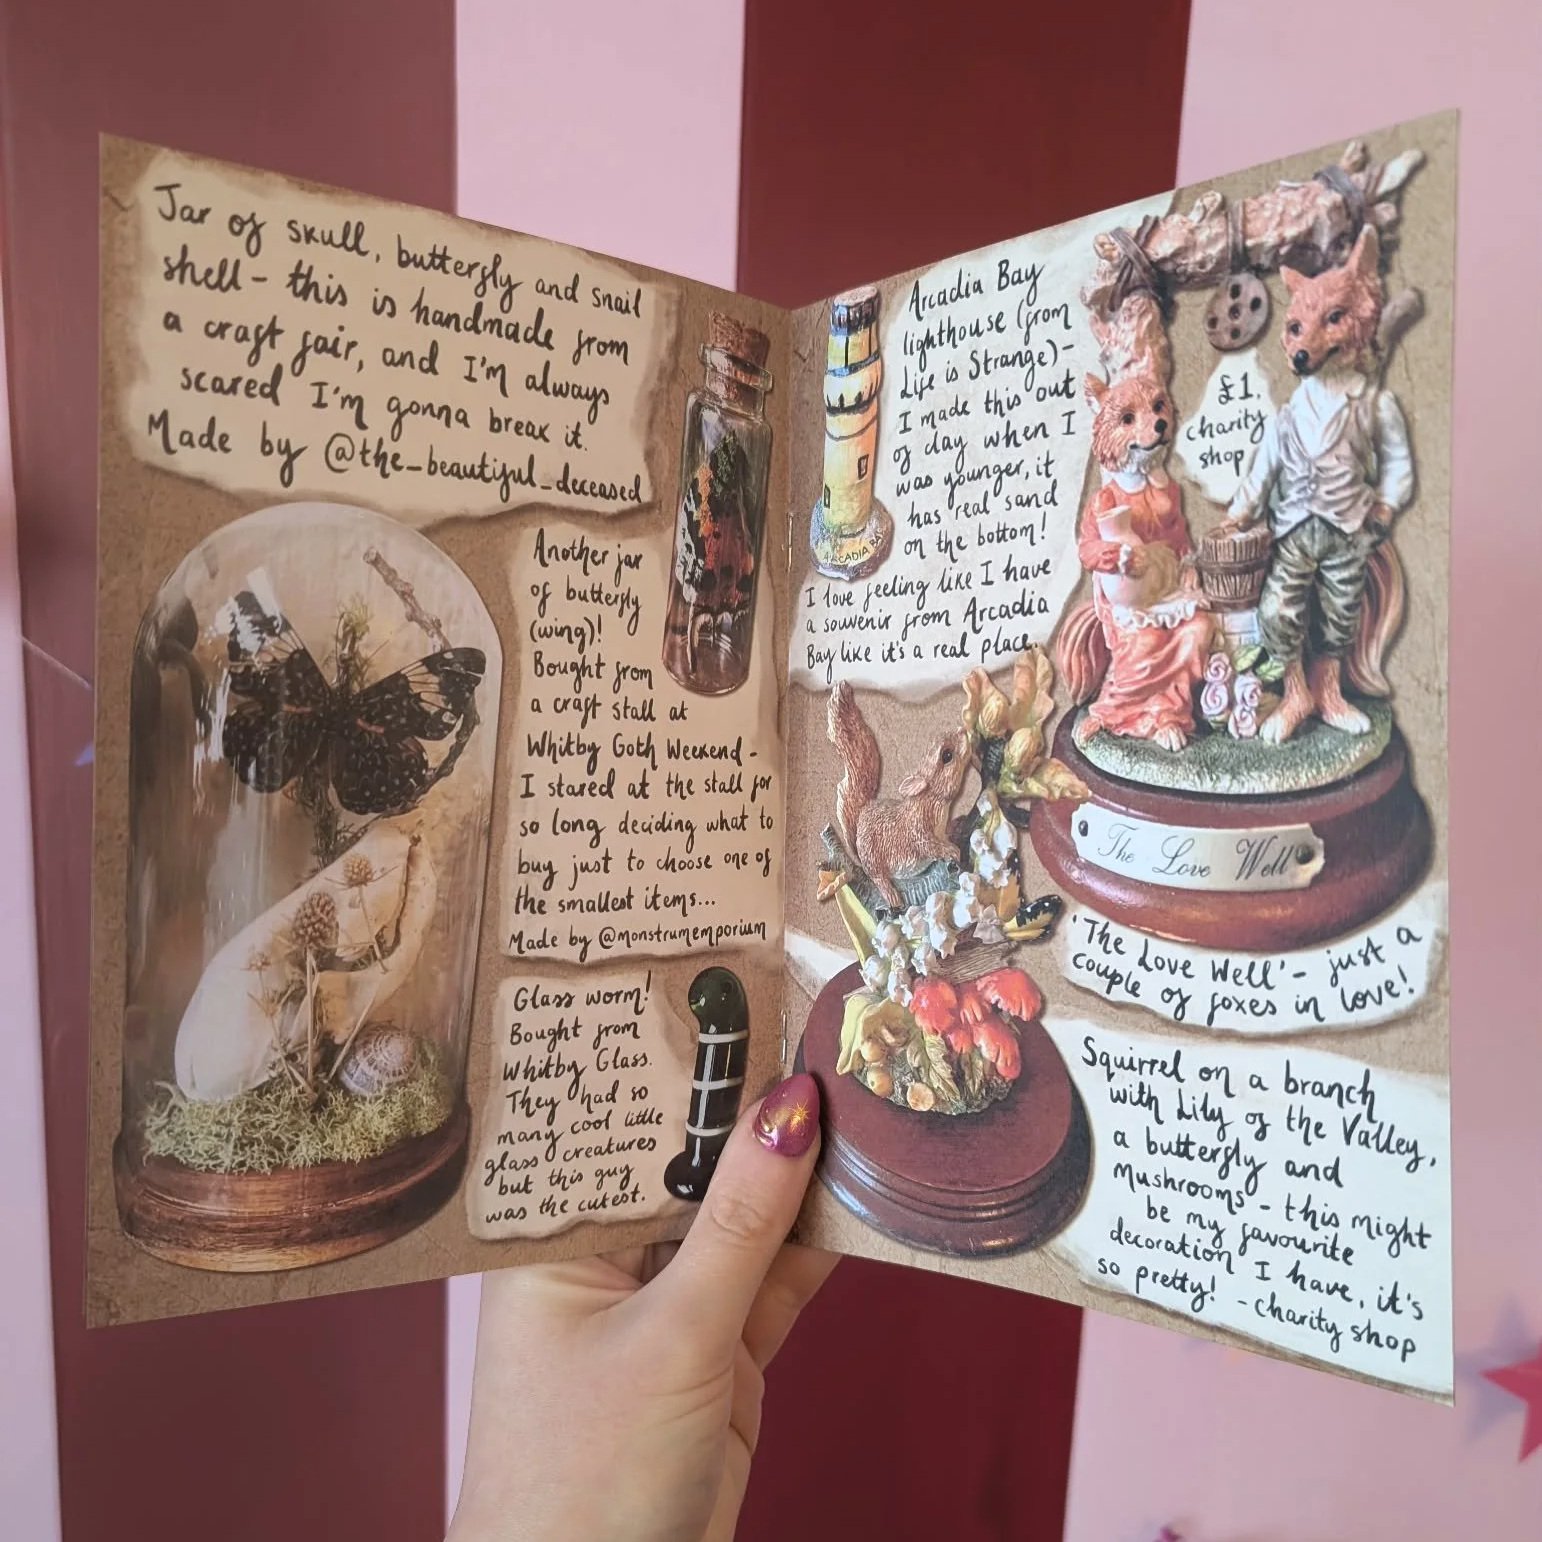 Jar of skull, butterfly and snail
shell - this is handmade from
a craft fair, and I'm always
scared I'm gonna break it.
Made by @the_beautiful_deceased
Another jar
of butterfly
(wing)!
Bought from
a craft stall at
Whitby Goth Weekend -
I stared at the stall for
so long deciding what to
buy just to choose one of
the smallest items...
Made by @monstrumemporium
Glass worm!
Bought from
Whitby Glass.
They had so
many cool little
glass creatures
but this guy
was the cutest.
Arcadia Bay
lighthouse (from
Life is Strange) -
I made this out
of clay when I
was younger, it
has real sand
on the bottom!
I love feeling like I have
a souvenir from Arcadia
Bay like it's a real place.
ARCADIA BAY
£1,
charity
shop
The Love Well
'The Love Well' - just a
couple of foxes in love!
Squirrel on a branch
with Lily of the Valley,
a butterfly and
Mushrooms - this might
be my favourite
decoration I have, it's
so pretty! - charity shop